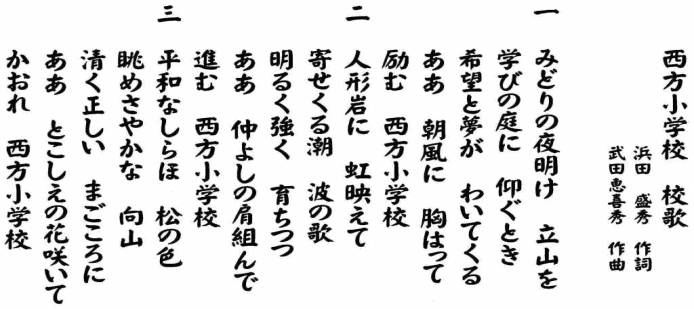 西方小学校　校歌
浜田　盛秀　作詞
武田恵喜秀　作曲
一
みどりの夜明け　立山を
学びの庭に　仰ぐとき
希望と夢が　わいてくる
ああ　朝風に　胸はって
励む　西方小学校
二
人形岩に　虹映えて
寄せくる潮　波の歌
明るく強く　育ちつつ
ああ　仲よしの肩組んで
進む　西方小学校
三
平和なしらほ　松の色
眺めさやかな　向山
清く正しい　まごころに
ああ　とこしえの花咲いて
かおれ　西方小学校